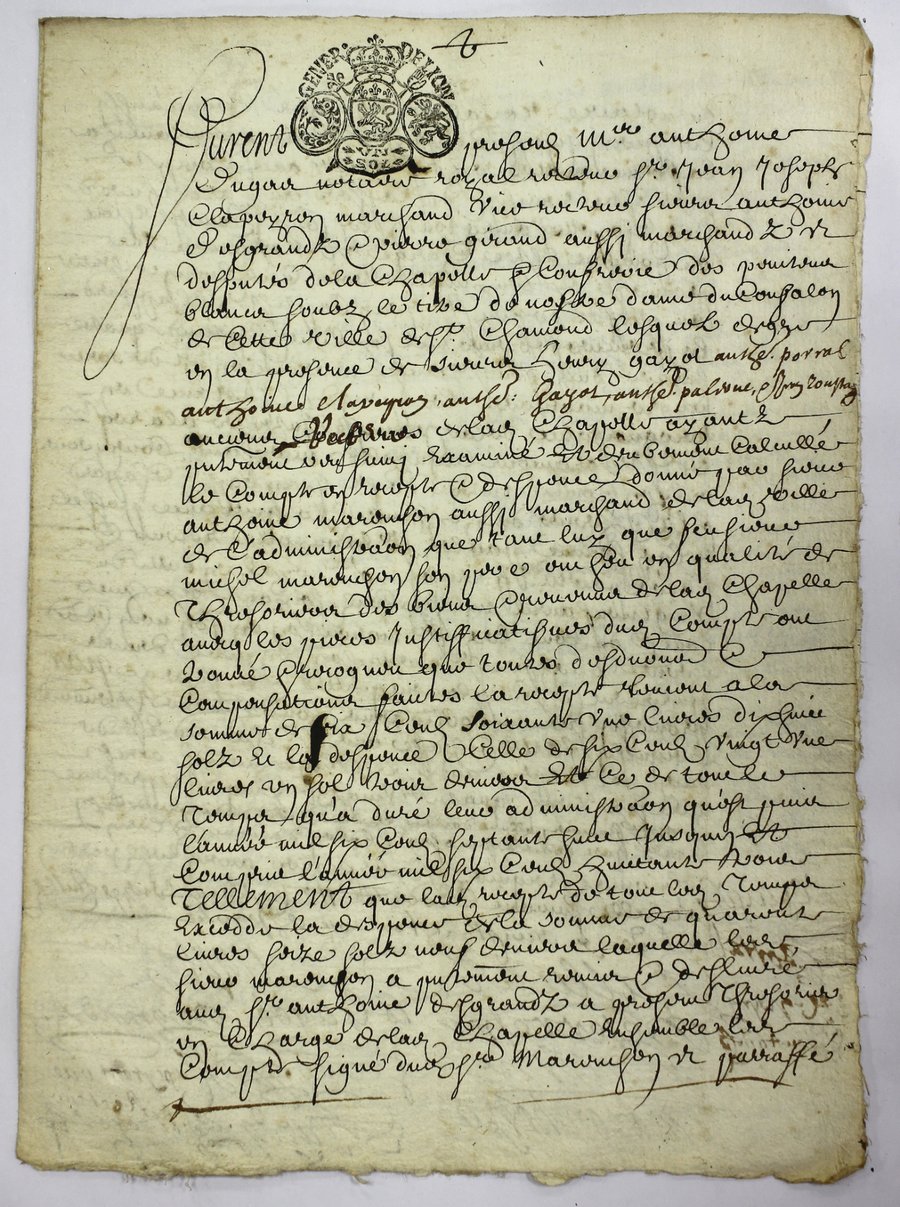 GENER. DE LION
VN SOL
Furent presens Mre anthoine
Dugaa notaire royal recteur sr. Jean Joseph
Clapeyron marchand vice recteur sieurs anthoine
Desgrandz & pierre girand aussi marchandz et
desputés de la Chapelle & Confrerie des penitens
blancs soubz le titre de nostre dame du Confalon
de cette ville de st. Chamond lesquelz de gre
en la presence de sieurs henry gayot anthe. porral
anthoine clapeyron, anthe. Gayot, anthe. palerne,
anciens Recteurs de lad Chapelle ayantz
putement veu leu examiné et deubement calcullé
le Compte en recepte & despence donné par sieur
anthoine maronchon aussi marchand de lad ville
de l'administraon que tant luy que feu sieur
michel maronchon son pere ont heu en qualité de
Thresoriers des biens & revenus de lad Chapelle
aueq les pieces Justifficatifves dud Compte ont
trouué & recogneu que toutes desductions &
Compensations faites la recepte reuient a la
somme de six Cent soixante vne liures dixhuict
solz et la despence a Celle de six Cent vingt vne
liures vn sol trois deniers et Ce de tout le
Temps qu'a duré leur administraon qu'est puis
l'année mil six Cent septante huict Jusques et
Compris l'année mil six Cent huictante trois
TELLEMENT que lad recepte de tout led Temps
excedde la despence de la somme de quarante
liures seize solz neuf deniers laquelle led
sieur maronchon a putement remis & desliuré
aud sr. anthoine desgrandz a present Thresorier
en Charge de lad Chapelle Ensemble led
Compte signé dud sr. Maronchon et parraffé